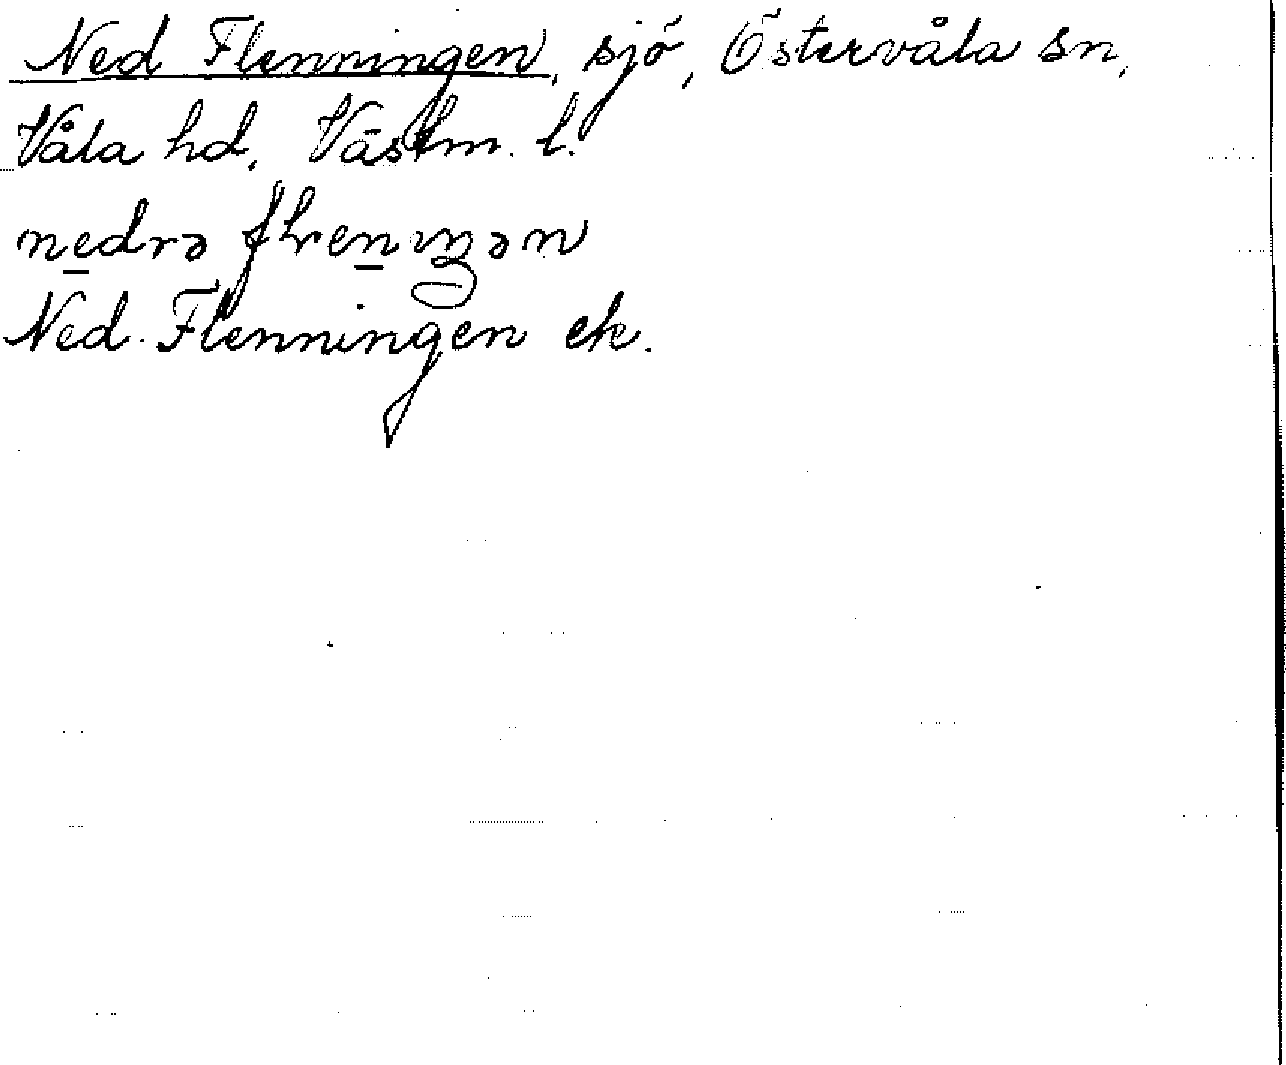 Ned Flenningen, sjö, Östervåla sn,
Våla hd, Västm. l.
nedrə
Ned. Flenningen ek.